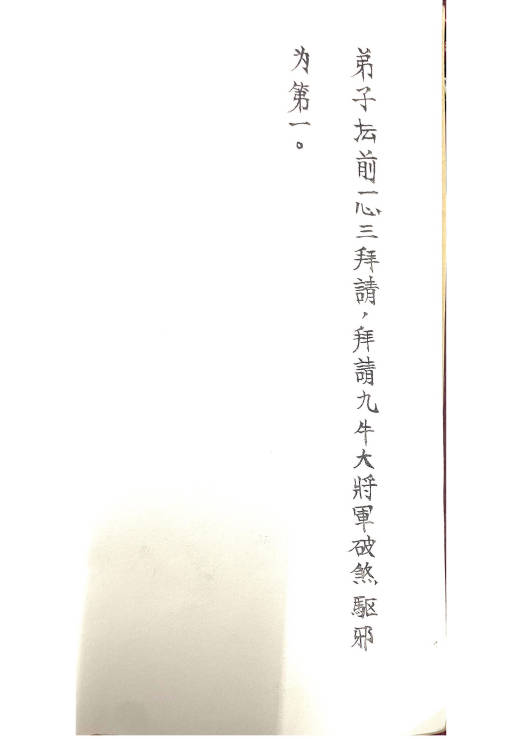 弟子坛前一心三拜請，拜請九牛大將軍破煞驅邪
为第一。